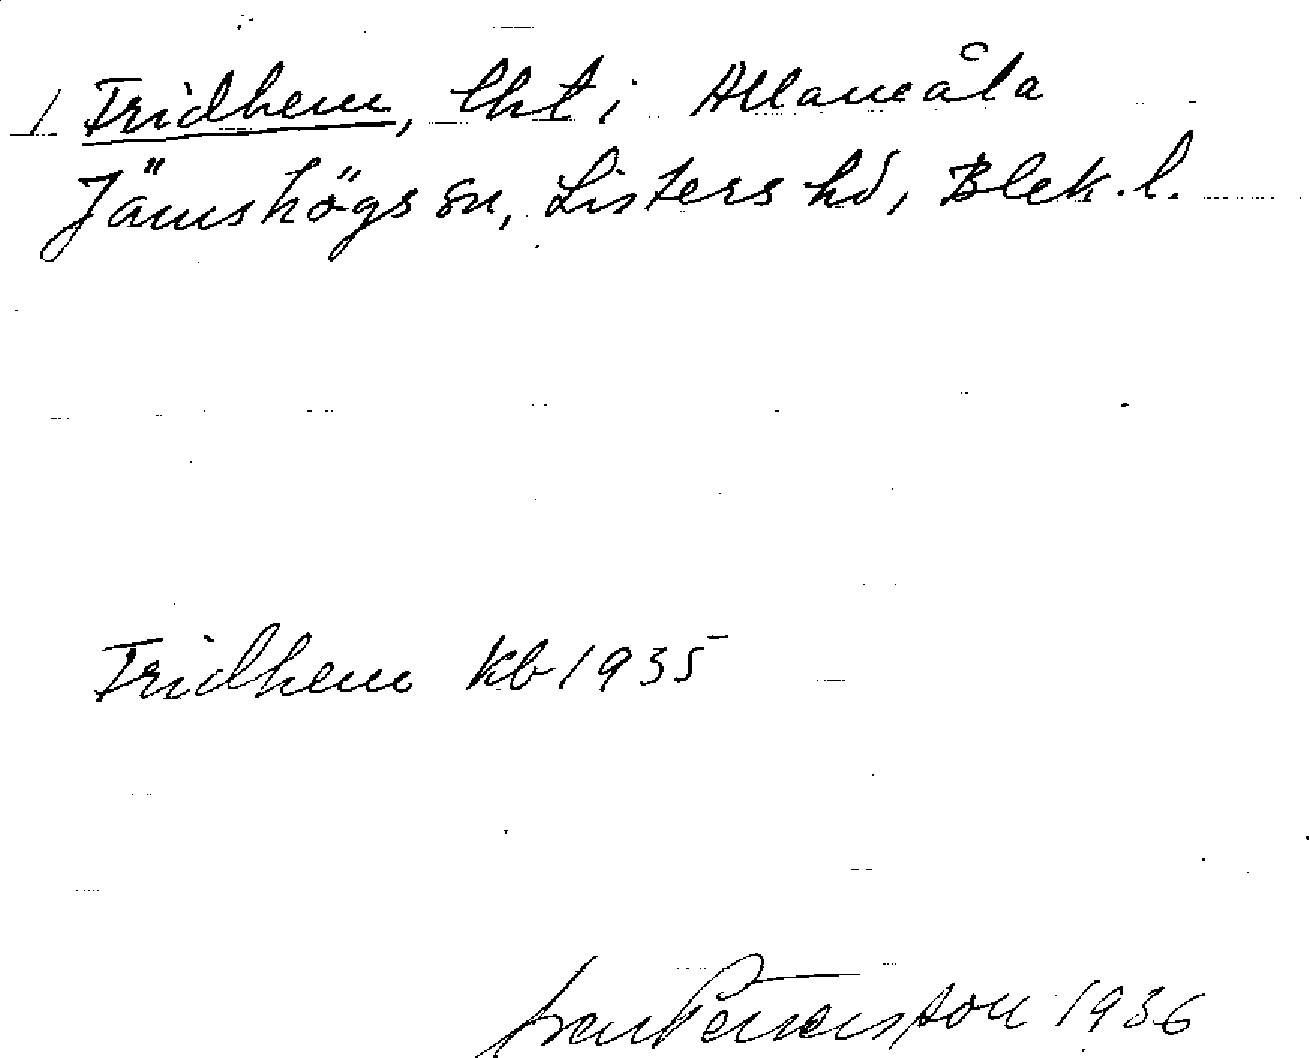 1 Fridhem, lht i Allamåla
Jämshögs sn, Listers hd, Blek. l.
Fridhem Kb 1935
1936